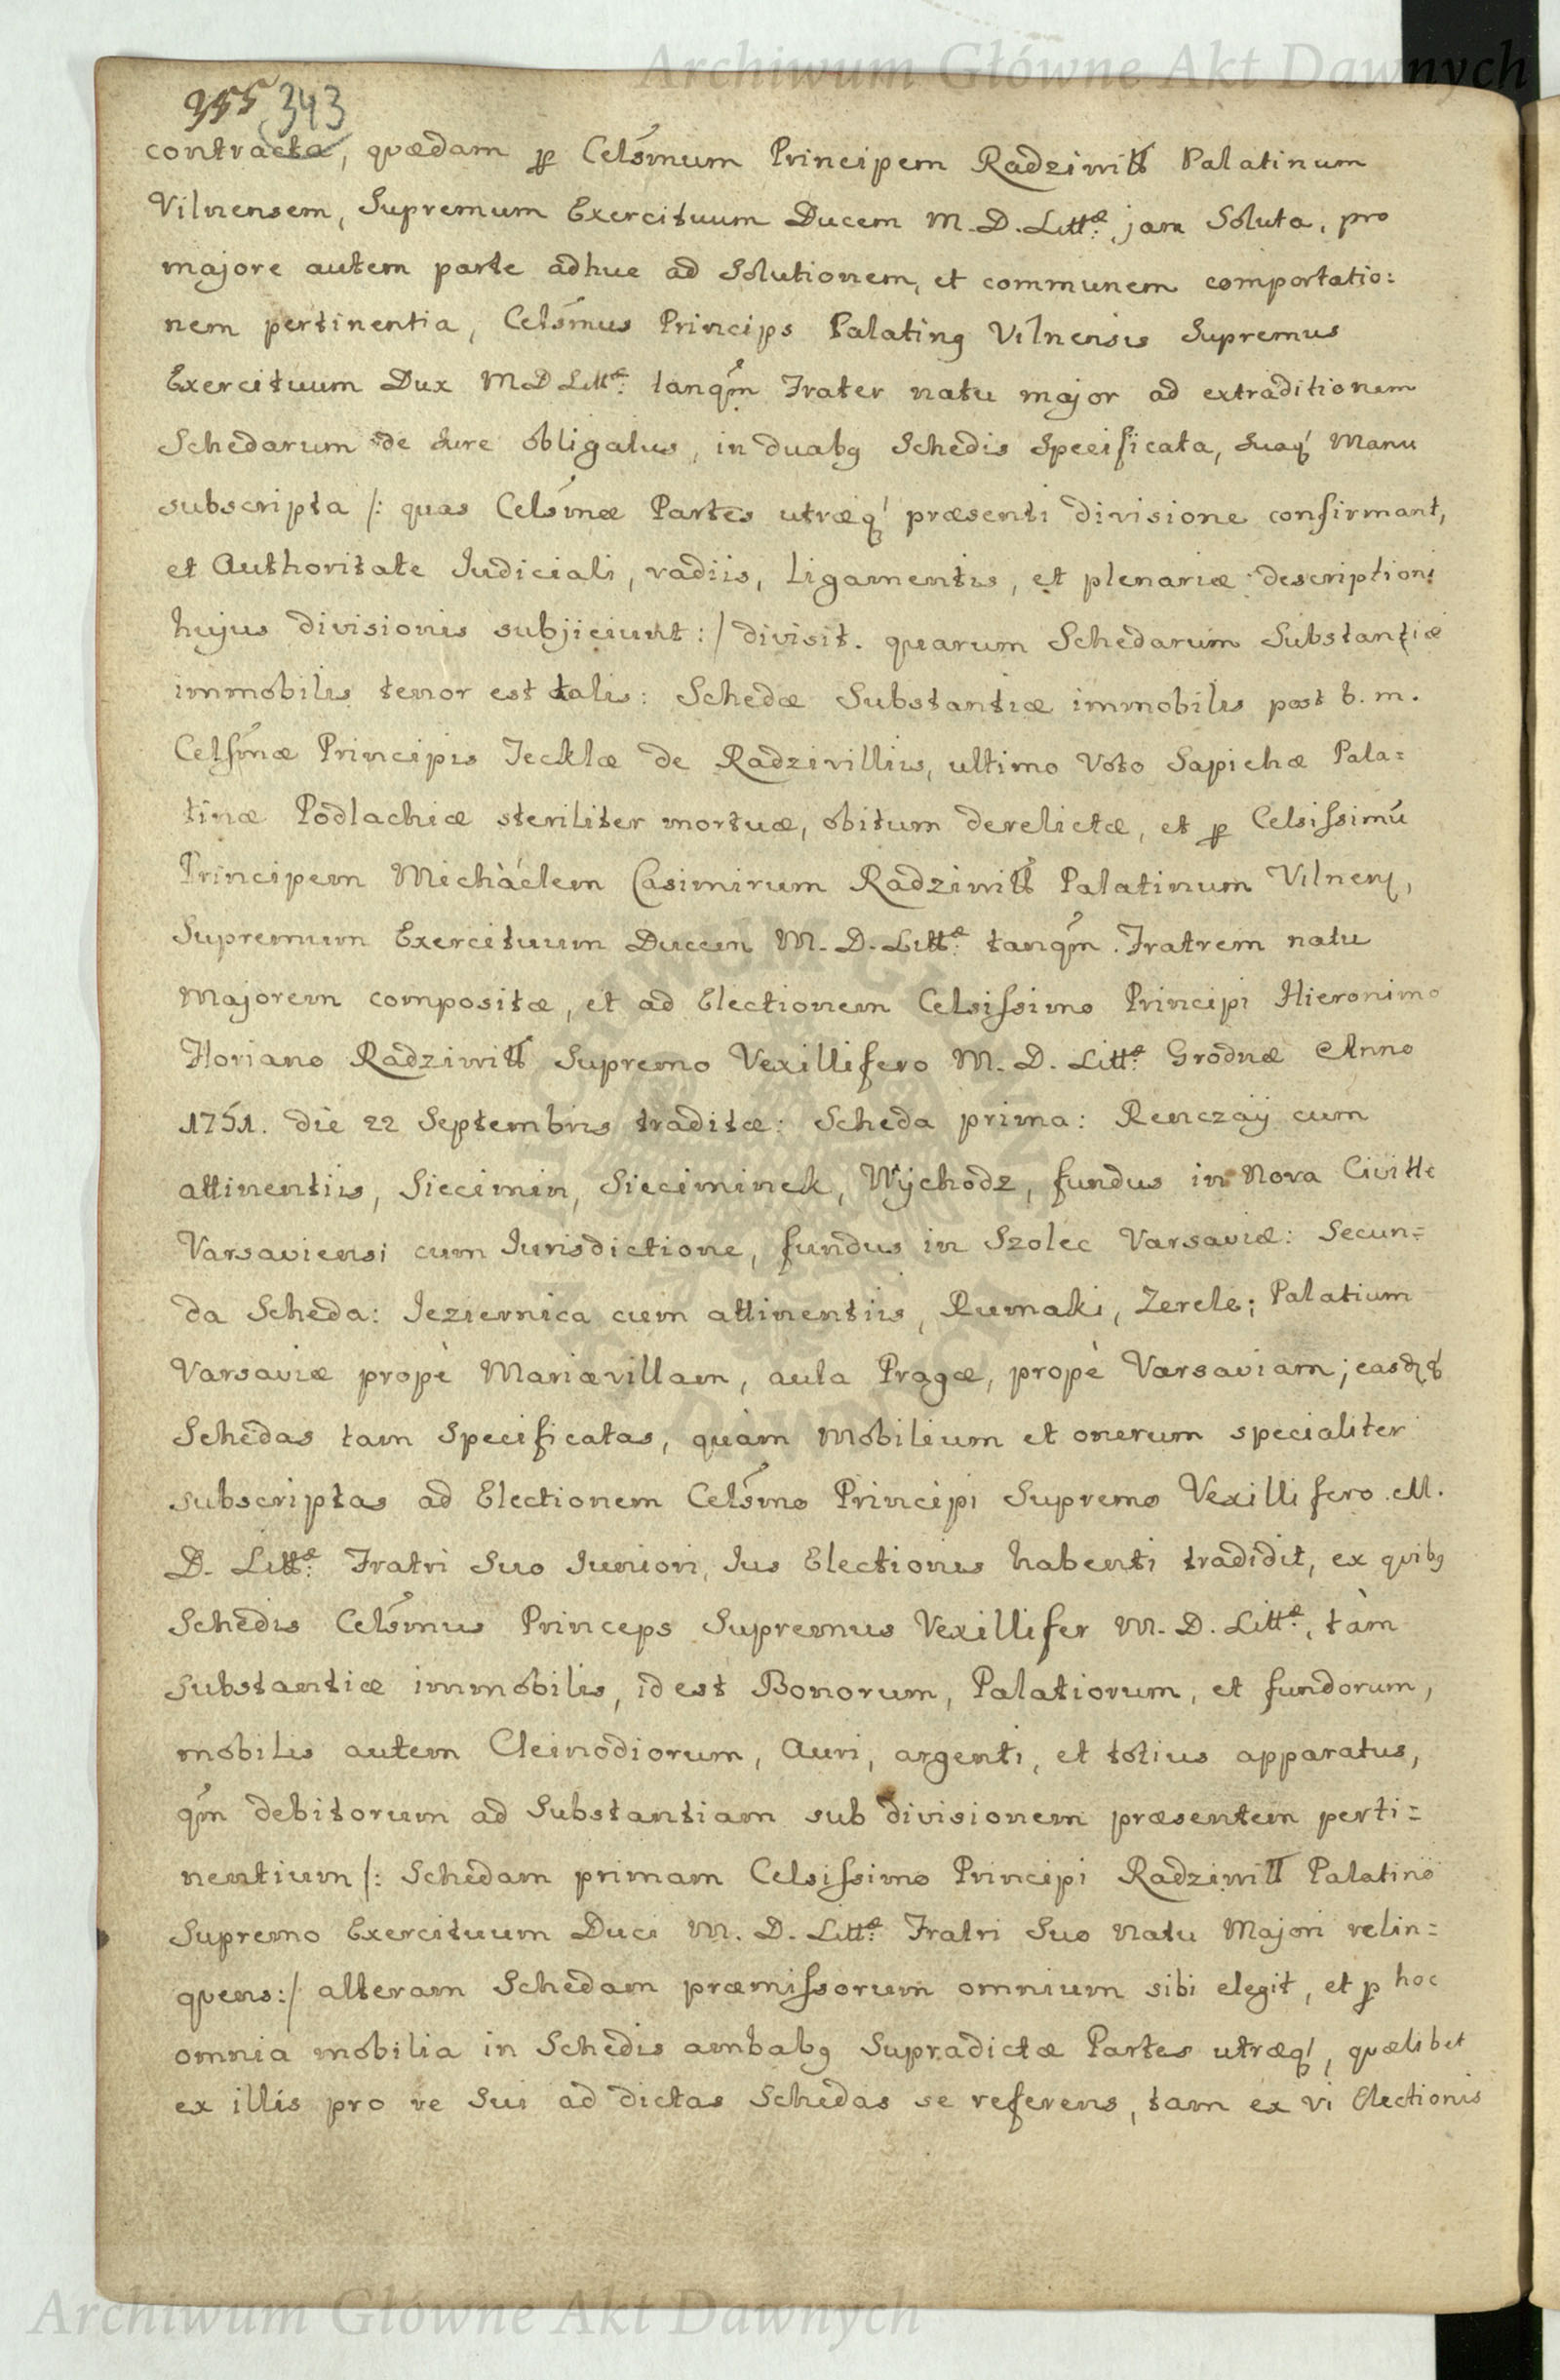 Archiwum Główne Akt Dawnych
355 343
contracta, quædam ꝑ Celsĩmum Principem Radziwiłł Palatinum
Vilnensem, Supremum Exercituum Ducem M. D. Littæ: jam Soluta, pro
majore autem parte adhuc ad Solutionem, et communem comportatio:
nem pertinentia, Celsĩmus Princips Palatinꝰ Vilnensis Supremus
Exercituum Dux M D Littæ: tanqm̃ Frater natu major ad extraditionem
Schedarum de Jure obligatus, in duabꝰ Schedis Specificata, Suaq́ Manu
subscripta /: quas Celsĩmæ Partes utræq́ præsenti divisione confirmant,
et Authoritate Judiciali, vadiis, Ligamentis, et plenariæ descriptioni
hujus divisionis subjiciunt :/ divisit. quarum Schedarum Substantiæ
immobilis tenor est talis: Schedæ Substantiæ immobilis post b. m.
Celsĩmæ Principis Tecklæ de Radzivilliis, ultimo Voto Sapiehæ Pala=
tinæ Podlachiæ steriliter mortuæ, obitum derelictæ, et ꝑ Celsissimũ
Principem Michàélem Casimirum Radziwiłł Palatinum Vilnen,
Supremum Exercituum Ducem M. D. Littæ: tanqm̃ Fratrem natu
Majorem compositæ, et ad Electionem Celsissimo Principi Hieronimo
Floriano Radziwiłł Supremo Vexillifero M. D. Littæ: Grodnæ Anno
1751. die 22 Septembris traditæ: Scheda prima: Renczaÿ cum
attinentiis, Siecimin, Sieciminek, Wychodz, fundus in Nova Civitte
Varsaviensi cum Jurisdictione, fundus in Szolec Varsaviæ: Secun=
da Scheda: Jeziernica cum attinentiis, Rumaki, Zerele; Palatium
Varsaviæ propè Mariævillam, aula Pragæ, propè Varsaviam; easdq́
Schedas tam Specificatas, quàm Mobilium et onerum specialiter
subscriptas ad Electionem Celsĩmo Principi Supremo Vexillifero M.
D. Littæ: Fratri Suo Juniori, Jus Electionis habenti tradidit, ex quibꝰ
Schedis Celsĩmus Princeps Supremus Vexillifer M. D. Littæ:, tàm
Substantiæ immobilis, id est Bonorum, Palatiorum, et fundorum,
mobilis autem Cleinodiorum, Auri, argenti, et totius apparatus,
qm̃ debitorum ad Substantiam sub divisionem præsentem perti=
nentium /: Schedam primam Celsissimo Principi Radziwiłł Palatino
Supremo Exercituum Duci M. D. Littæ: Fratri Suo Natu Majori relin=
quens :/ alteram Schedam præmissorum omnium sibi elegit, et ꝑ hoc
omnia mobilia in Schedis ambabꝰ Supradictæ Partes utræq́, quælibet
ex illis pro re Sui ad dictas Schedas se referens, tam ex vi Electionis
Archiwum Główne Akt Dawnych